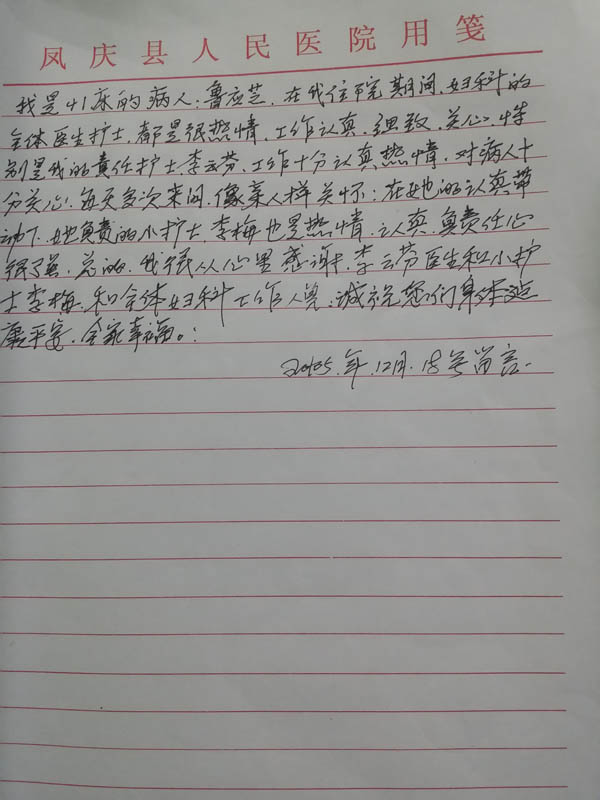 凤庆县人民医院用笺
我是41床的病人:鲁应芝,在我住院期间,妇科的
全体医生护士,都是很热情,工作认真,细致,关心,特
别是我的责任护士李云芬,工作十分认真热情,对病人十
分关心,每天多次来问,像亲人样关怀;在她的认真带
动下,她负责的小护士,李梅也是热情,认真,负责任心
很强,总的,我很从心里感谢,李云芬医生和小护
士李梅,和全体妇科工作人员,诚祝您们身体健
康平安,全家幸福。:
年,12月,18号留言.